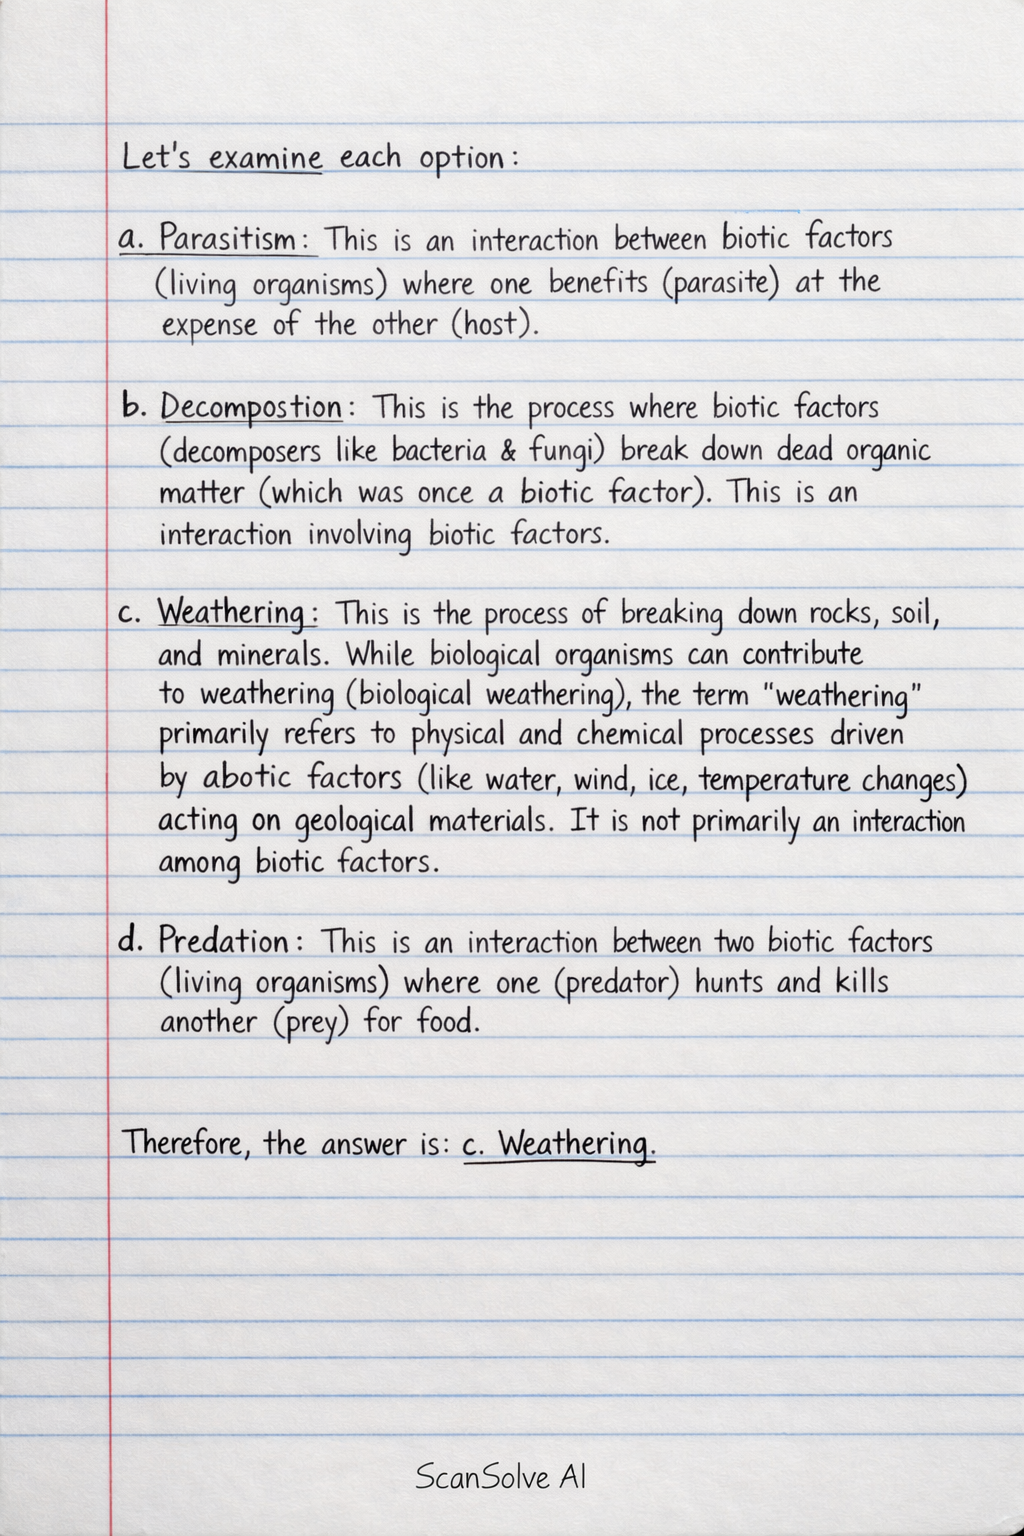 Let's examine each option:
a. Parasitism: This is an interaction between biotic factors
(living organisms) where one benefits (parasite) at the
expense of the other (host).
b. Decompostion: This is the process where biotic factors
(decomposers like bacteria & fungi) break down dead organic
matter (which was once a biotic factor). This is an
interaction involving biotic factors.
c. Weathering: This is the process of breaking down rocks, soil,
and minerals. While biological organisms can contribute
to weathering (biological weathering), the term "weathering"
primarily refers to physical and chemical processes driven
by abotic factors (like water, wind, ice, temperature changes)
acting on geological materials. It is not primarily an interaction
among biotic factors.
d. Predation: This is an interaction between two biotic factors
(living organisms) where one (predator) hunts and kills
another (prey) for food.
Therefore, the answer is: c. Weathering.
ScanSolve AI